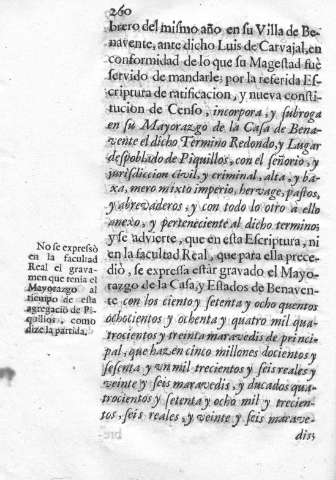 260
brero del mismo año en su Villa de Be-
navente, ante dicho Luis de Carvajal, en
conformidad de lo que su Magestad fuè
servido de mandarle; por la referida Es-
criptura de ratificacion, y nueva consti-
tucion de Censo, incorpora, y subroga
en su Mayorazgo de la Casa de Bena-
vente el dicho Termino Redondo, y Lugar
despoblado de Piquillos, con el señorio, y
jurisdiccion civil, y criminal, alta, y ba-
xa, mero mixto imperio, hervage, pastos,
y abrevaderos, y con todo lo otro a ello
anexo, y perteneciente al dicho termino;
y se advierte, que en esta Escriptura, ni
en la facultad Real, que para ella prece-
diò, se expressa estàr gravado el Mayo-
razgo de la Casa, y Estados de Benaven-
te con los ciento y setenta y ocho quentos
ochocientos y ochenta y quatro mil qua-
trocientos y treinta maravedis de princi-
pal, que hazen cinco millones docientos y
sesenta y un mil trecientos y seis reales y
veinte y seis maravedis, y ducados qua-
trocientos y setenta y ocho mil y trecien-
tos, seis reales, y veinte y seis marave-
dis;
No se expressò
en la facultad
Real el grava-
men que tenia el
Mayorazgo al
tiempo de esta
agregaciò de Pi-
quillos, como
dize la partida.